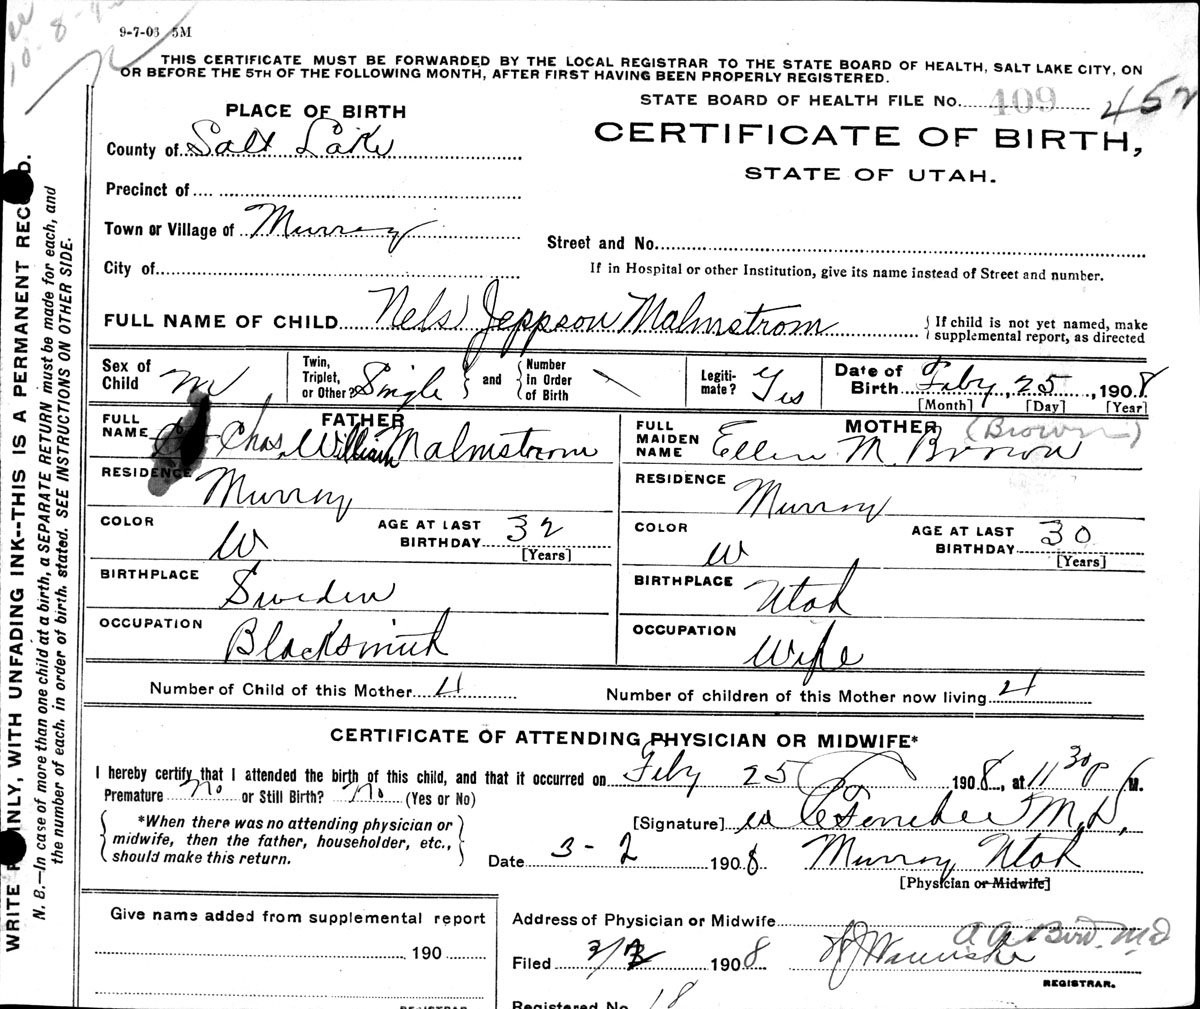 9-7-03 5M
THIS CERTIFICATE MUST BE FORWARDED BY THE LOCAL REGISTRAR TO THE STATE BOARD OF HEALTH, SALT LAKE CITY, ON
OR BEFORE THE 5TH OF THE FOLLOWING MONTH, AFTER FIRST HAVING BEEN PROPERLY REGISTERED.
STATE BOARD OF HEALTH FILE No. 409 452
PLACE OF BIRTH
CERTIFICATE OF BIRTH,
STATE OF UTAH.
County of Salt Lake
Precinct of
Town or Village of Murray
Street and No.
City of
If in Hospital or other Institution, give its name instead of Street and number.
FULL NAME OF CHILD Nels Jeppson Malmstrom
{ If child is not yet named, make
supplemental report, as directed
Sex of Child M
Twin, Triplet, or Other? Single } and { Number in Order of Birth \
Legiti-mate? Yes
Date of Birth Feby 25, 1908
[Month] [Day] [Year]
FATHER
FULL NAME Chas. William Malmstrom
RESIDENCE Murray
COLOR W
AGE AT LAST BIRTHDAY 32 [Years]
BIRTHPLACE Sweden
OCCUPATION Blacksmith
MOTHER (Brown)
FULL MAIDEN NAME Ellen M. Brown
RESIDENCE Murray
COLOR W
AGE AT LAST BIRTHDAY 30 [Years]
BIRTHPLACE Utah
OCCUPATION Wife
Number of Child of this Mother 4
Number of children of this Mother now living 4
CERTIFICATE OF ATTENDING PHYSICIAN OR MIDWIFE*
I hereby certify that I attended the birth of this child, and that it occurred on Feby 25 1908, at 11 30 P M.
Premature No or Still Birth? No (Yes or No)
{ *When there was no attending physician or
midwife, then the father, householder, etc.,
should make this return. }
[Signature] M.D.
Date 3-2 1908 Murray Utah
[Physician or Midwife]
Give name added from supplemental report
190
REGISTRAR
Address of Physician or Midwife
Filed 1908
M.D.
REGISTRAR.
Registered No. 18
WRITE PLAINLY, WITH UNFADING INK--THIS IS A PERMANENT RECORD.
N. B.—In case of more than one child at a birth, a SEPARATE RETURN must be made for each, and
the number of each, in order of birth, stated. SEE INSTRUCTIONS ON OTHER SIDE.